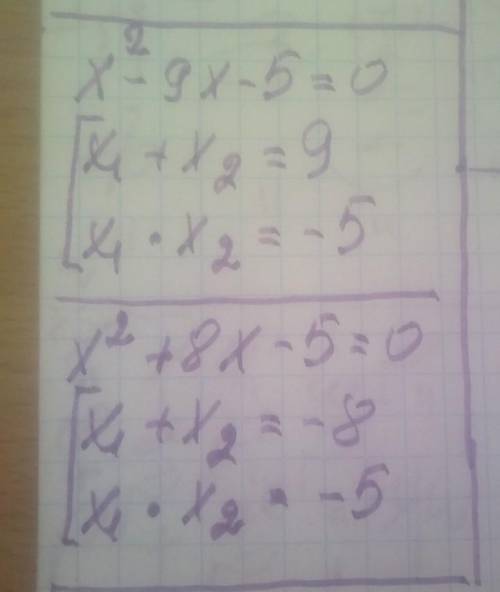 x² - 9x - 5 = 0
[x₁ + x₂ = 9
[x₁ · x₂ = -5
x² + 8x - 5 = 0
[x₁ + x₂ = -8
[x₁ · x₂ · -5